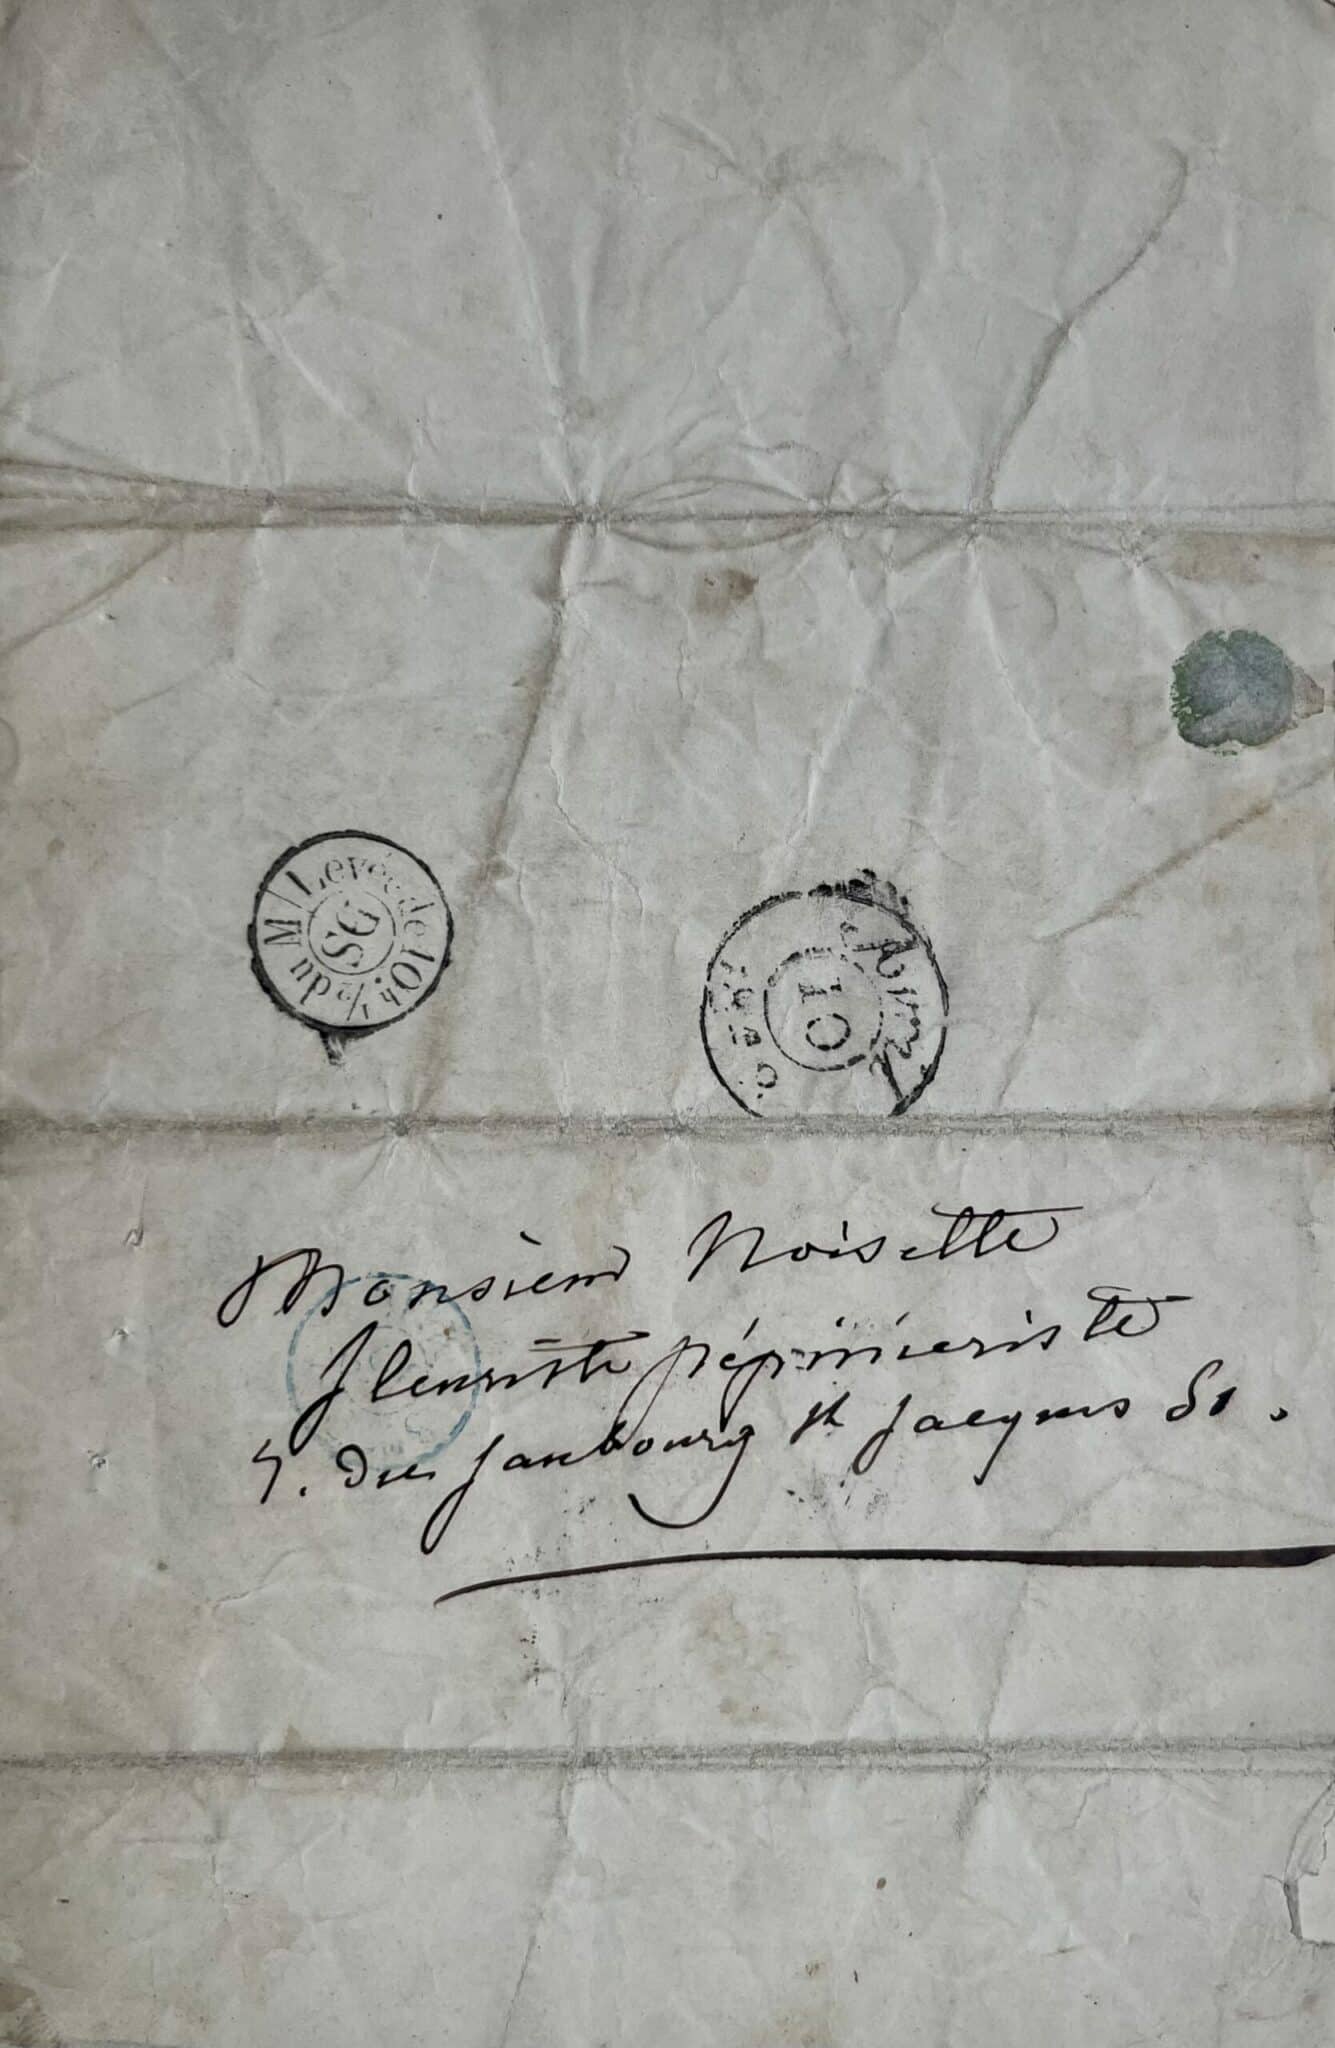 Levée de 10h 1/2 du M
SG
10
Monsieur Noisette
fleuriste pépinieriste
r. du faubourg st Jacques 51.